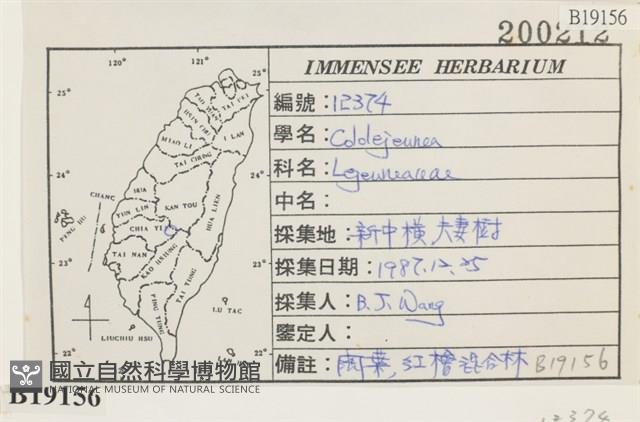 B19156
200212
IMMENSEE HERBARIUM
編號：12374
學名：Cololejeunea
科名：Lejeuneaceae
中名：
採集地：新中橫,夫妻樹
採集日期：1987.12.25
採集人：B.J. Wang
鑒定人：
備註：闊葉,紅檜混合林 B19156
120° 121°
25° 25°
TAI PEI
TAO YUAN
HSIN CHU
I LAN
MIAO LI
TAI CHUNG
24° 24°
HUA
CHANG
NAN TOU
HUA LIEN
YUN LIN
PENG HU
CHIA YI
TAI NAN
KAO HSIUNG
23° 23°
TAI TUNG
PING TUNG
LU TAO
LIUCHIU HSU
22° 22°
國立自然科學博物館
NATIONAL MUSEUM OF NATURAL SCIENCE
B19156
12374